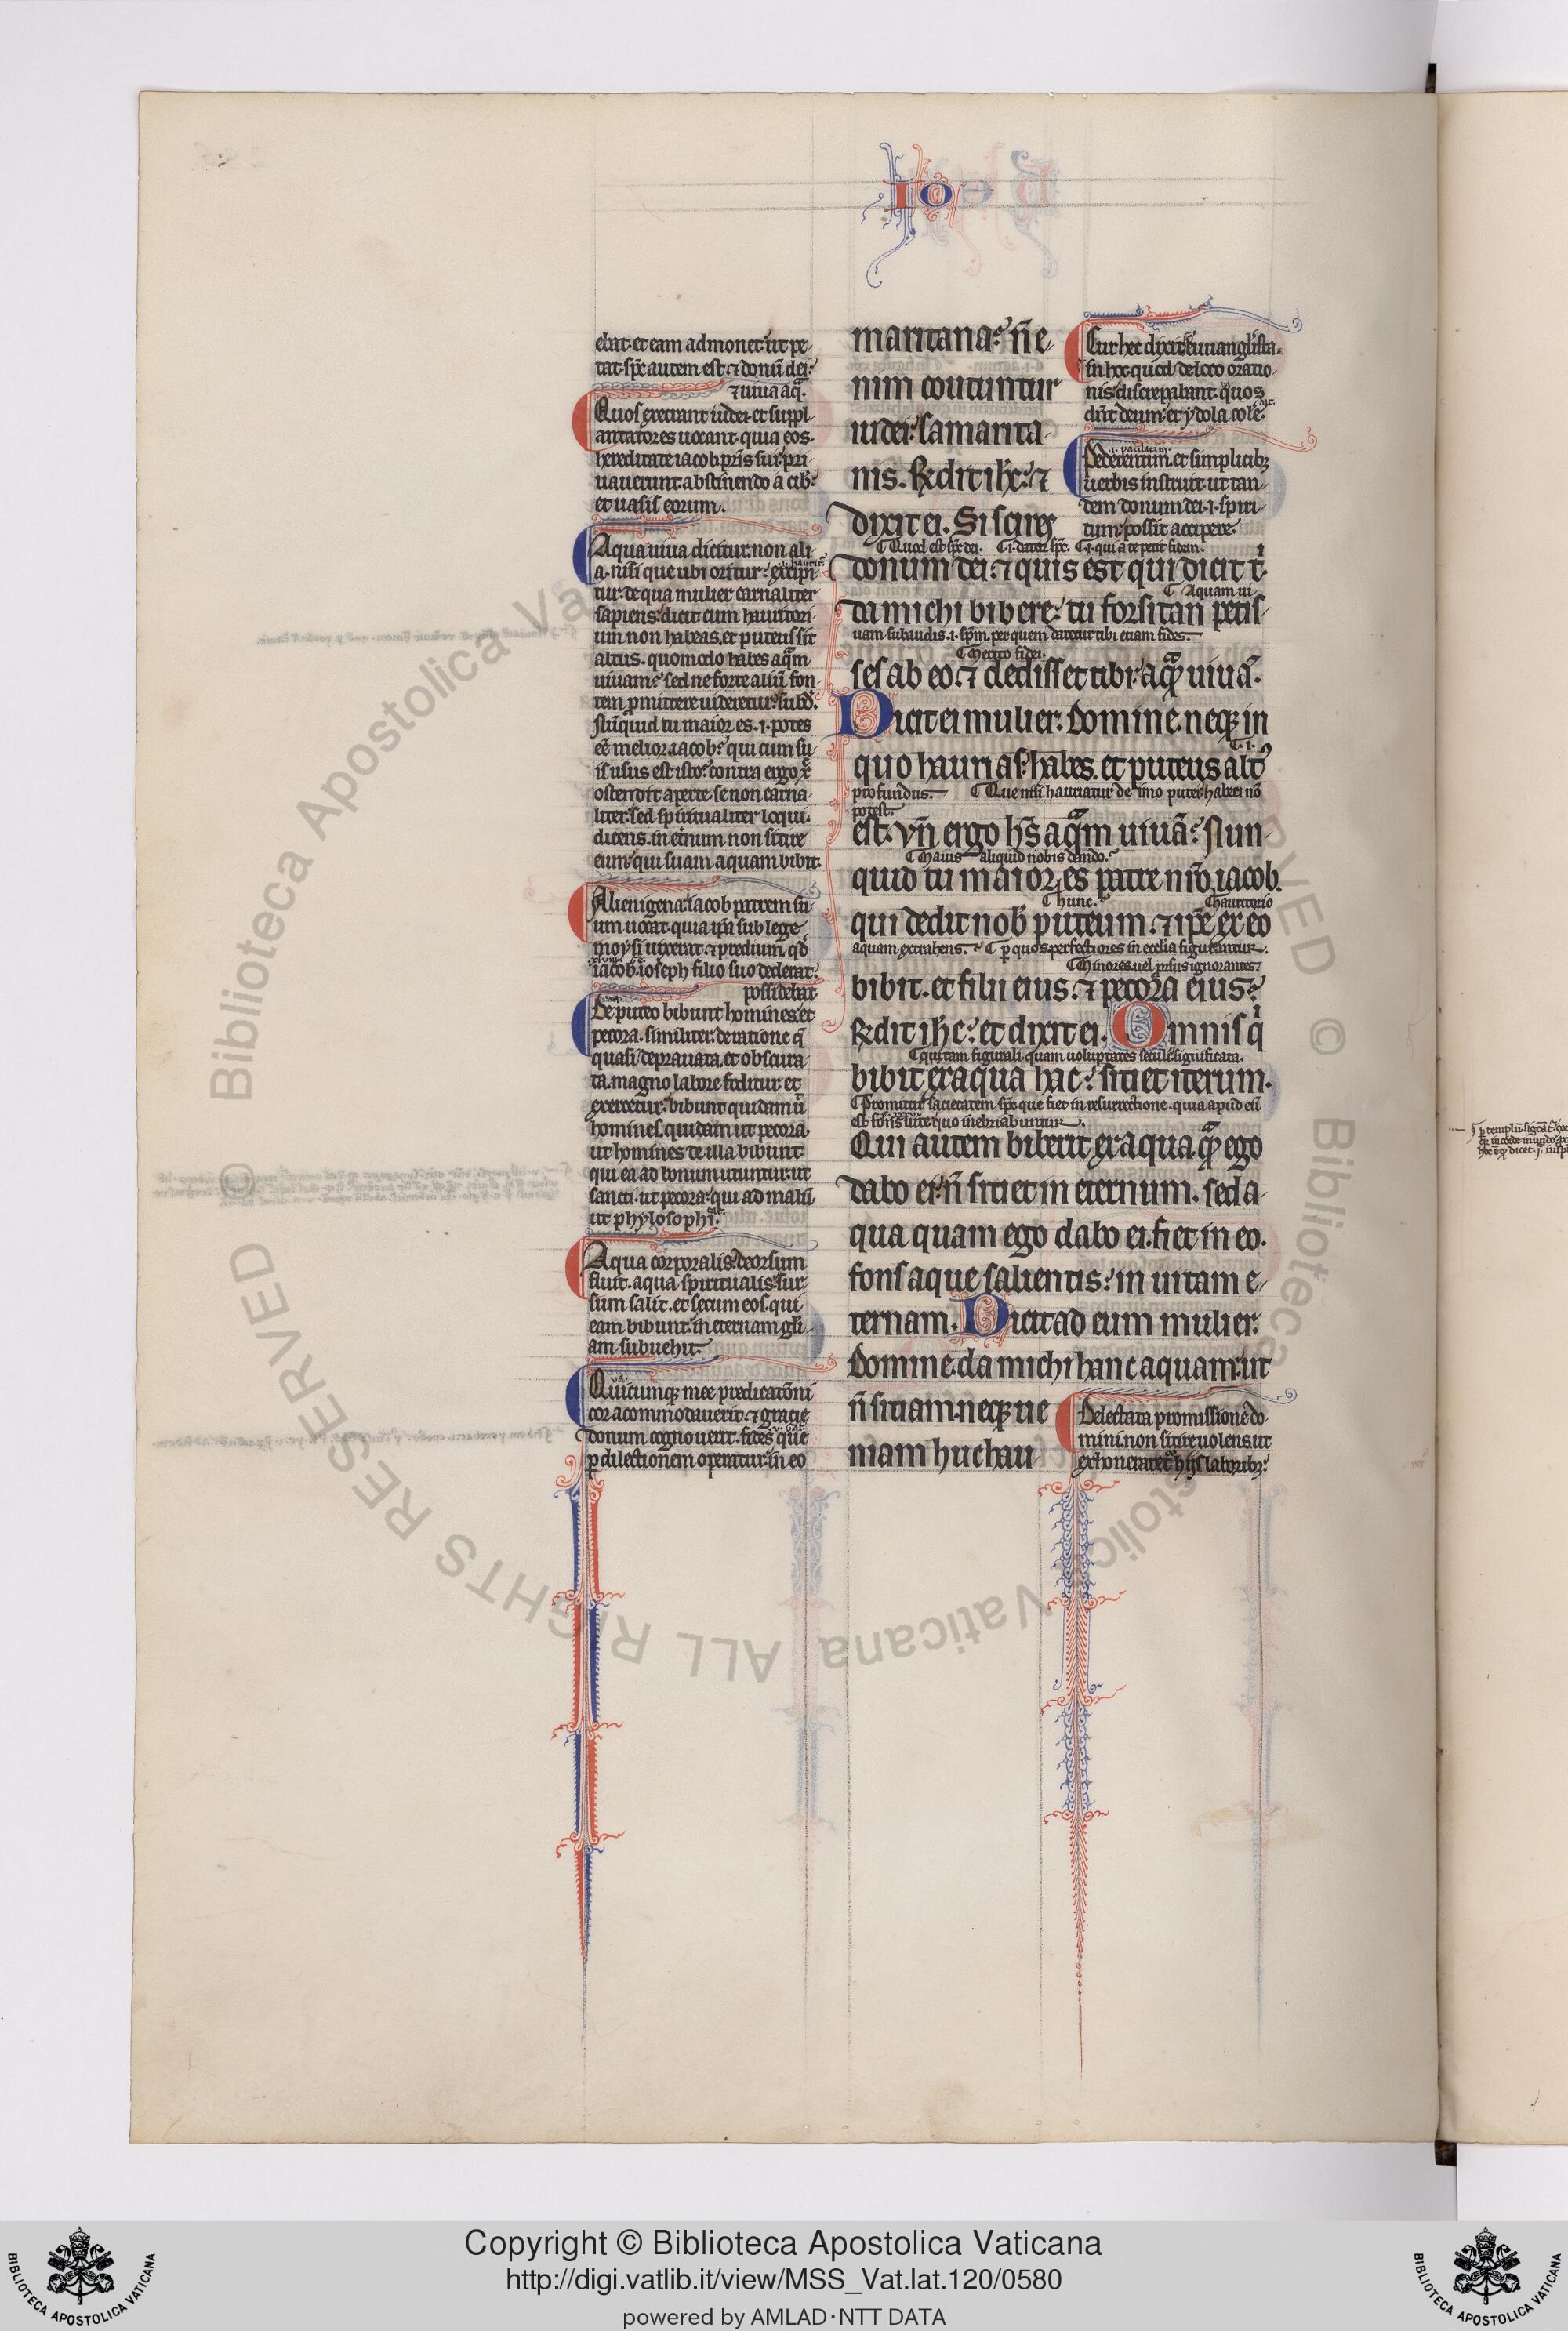 IO
ebat. et eam admonet ut pe
tat. sp̄c autem est. ⁊ donū dei.
⁊ uiua aq̄.
Quos execrant iudei. et suppl
antatores uocant. quia eos
hereditate iacob p̄ris sui. pri
uauerunt abstinendo a cib.
et uasis eorum.
Aqua uiua dicitur. non ali
a. nisi que ubi oritur. excipi
tur. de qua mulier carnaliter
sapiens. dicit cum hauritori
um non habeas. et puteus sit
altus. quomodo habes aq̄m
uiuam? sed ne forte aliū fon
tem p̄mittere uideretur. subd̄.
Nūquid tu maior es. i. potes
eē melior. iacob? qui cum su
is usus est isto. contra ergo xp̄c
ostendit aperte. se non carna
liter. sed spiritualiter loqui.
dicens. in et̄num non sitire
eum qui suam aquam bibit.
Alienigena. iacob patrem su
um uocat. quia ip̄a sub lege
moysi uixerat. ⁊ predium. qd̄
iacob. ioseph filio suo dederat.
possidebat
De puteo bibunt homines. et
pecora. similiter. de ratione q̄
quasi deprauata. et obscura
ta. magno labore foditur. et
exercetur. bibunt quidam ū
homines. quidam ut pecora.
ut homines de illa bibunt
qui ea ad bonum utuntur. ut
sancti. ut pecora. qui ad malū
ut phylosophi.
Aqua corporalis. deorsum
fluit. aqua spiritualis. sur
sum salit. et secum eos. qui
eam bibunt. in eternam gl̄i
am subuehit.
Quicumq; mee predicatōni
cor acommodauerit. ⁊ gracie
donum cognouerit. fides que
ꝑ dilectionem operatur. in eo
maritana? n̄ e
nim coutuntur
iudei. samarita
nis. R̄dit ih̄c. ⁊
dixit ei. Si scires
Cur hec dixit euuanglista.
in hoc quod de loco oratio
nis. discrepabant. quos
dix̄t deum. et ydola cole.
.i. paulatim.
Pedetentim. et simplicib;
uerbis instruit. ut tan
dem donum dei. i. spiri
tum possit accipere.
Quod est sp̄c dei. .i. datur sp̄c. .i. qui a te petit fidem.
donum dei. ⁊ quis est qui dicit t̄
Aquam ui
da michi bibere. tu forsitan petis
uam subaudis. i. sp̄m. per quem daretur tibi etiam fides.
Merito fidei.
ses ab eo. ⁊ dedisset tibi. aq̄ uiuā.
Dicit ei mulier. Domine. neq; in
.i.
quo haurias. habes. et puteus alt⁹
profundus. Que nisi hauriatur de imo putei haberi nō
potest.
est. vn̄ ergo hēs aq̄m uiuā? Nun
Maius aliquid nobis dando.
quid tu maior es patre nr̄o iacob.
hunc. hauritorio
qui dedit nob̄ puteum. ⁊ ip̄e ex eo
aquam extrahens. ꝑ quos perfectiores in ecclia figurantur.
Minores. uel ꝓsus ignorantes.
bibit. et filii eius. ⁊ pecora eius?
R̄dit ih̄c. et dixit ei. Omnis q̄
qui tam figurali. quam uoluptates seculi. significata.
bibit ex aqua hac. sitiet iterum.
Promittit sacietatem sp̄c que fiet in resurrectione. quia apud eū
est fons uite quo inebriabuntur.
Qui autem biberit ex aqua. q̄ ego
dabo ei. n̄ sitiet in eternum. sed a
qua quam ego dabo ei. fiet in eo.
fons aque salientis. in uitam e
ternam. Dicit ad eum mulier.
Domine. da michi hanc aquam. ut
n̄ sitiam. neq; ue
niam huc hau
Delectata promissione do
mini. non sitire uolens. ut
exhoneraret hiis laborib;
© Biblioteca Apostolica Vaticana ALL RIGHTS RESERVED © Biblioteca Apostolica Vaticana ALL RIGHTS RESERVED
BIBLIOTECA APOSTOLICA VATICANA
Copyright © Biblioteca Apostolica Vaticana
http://digi.vatlib.it/view/MSS_Vat.lat.120/0580
powered by AMLAD·NTT DATA
BIBLIOTECA APOSTOLICA VATICANA